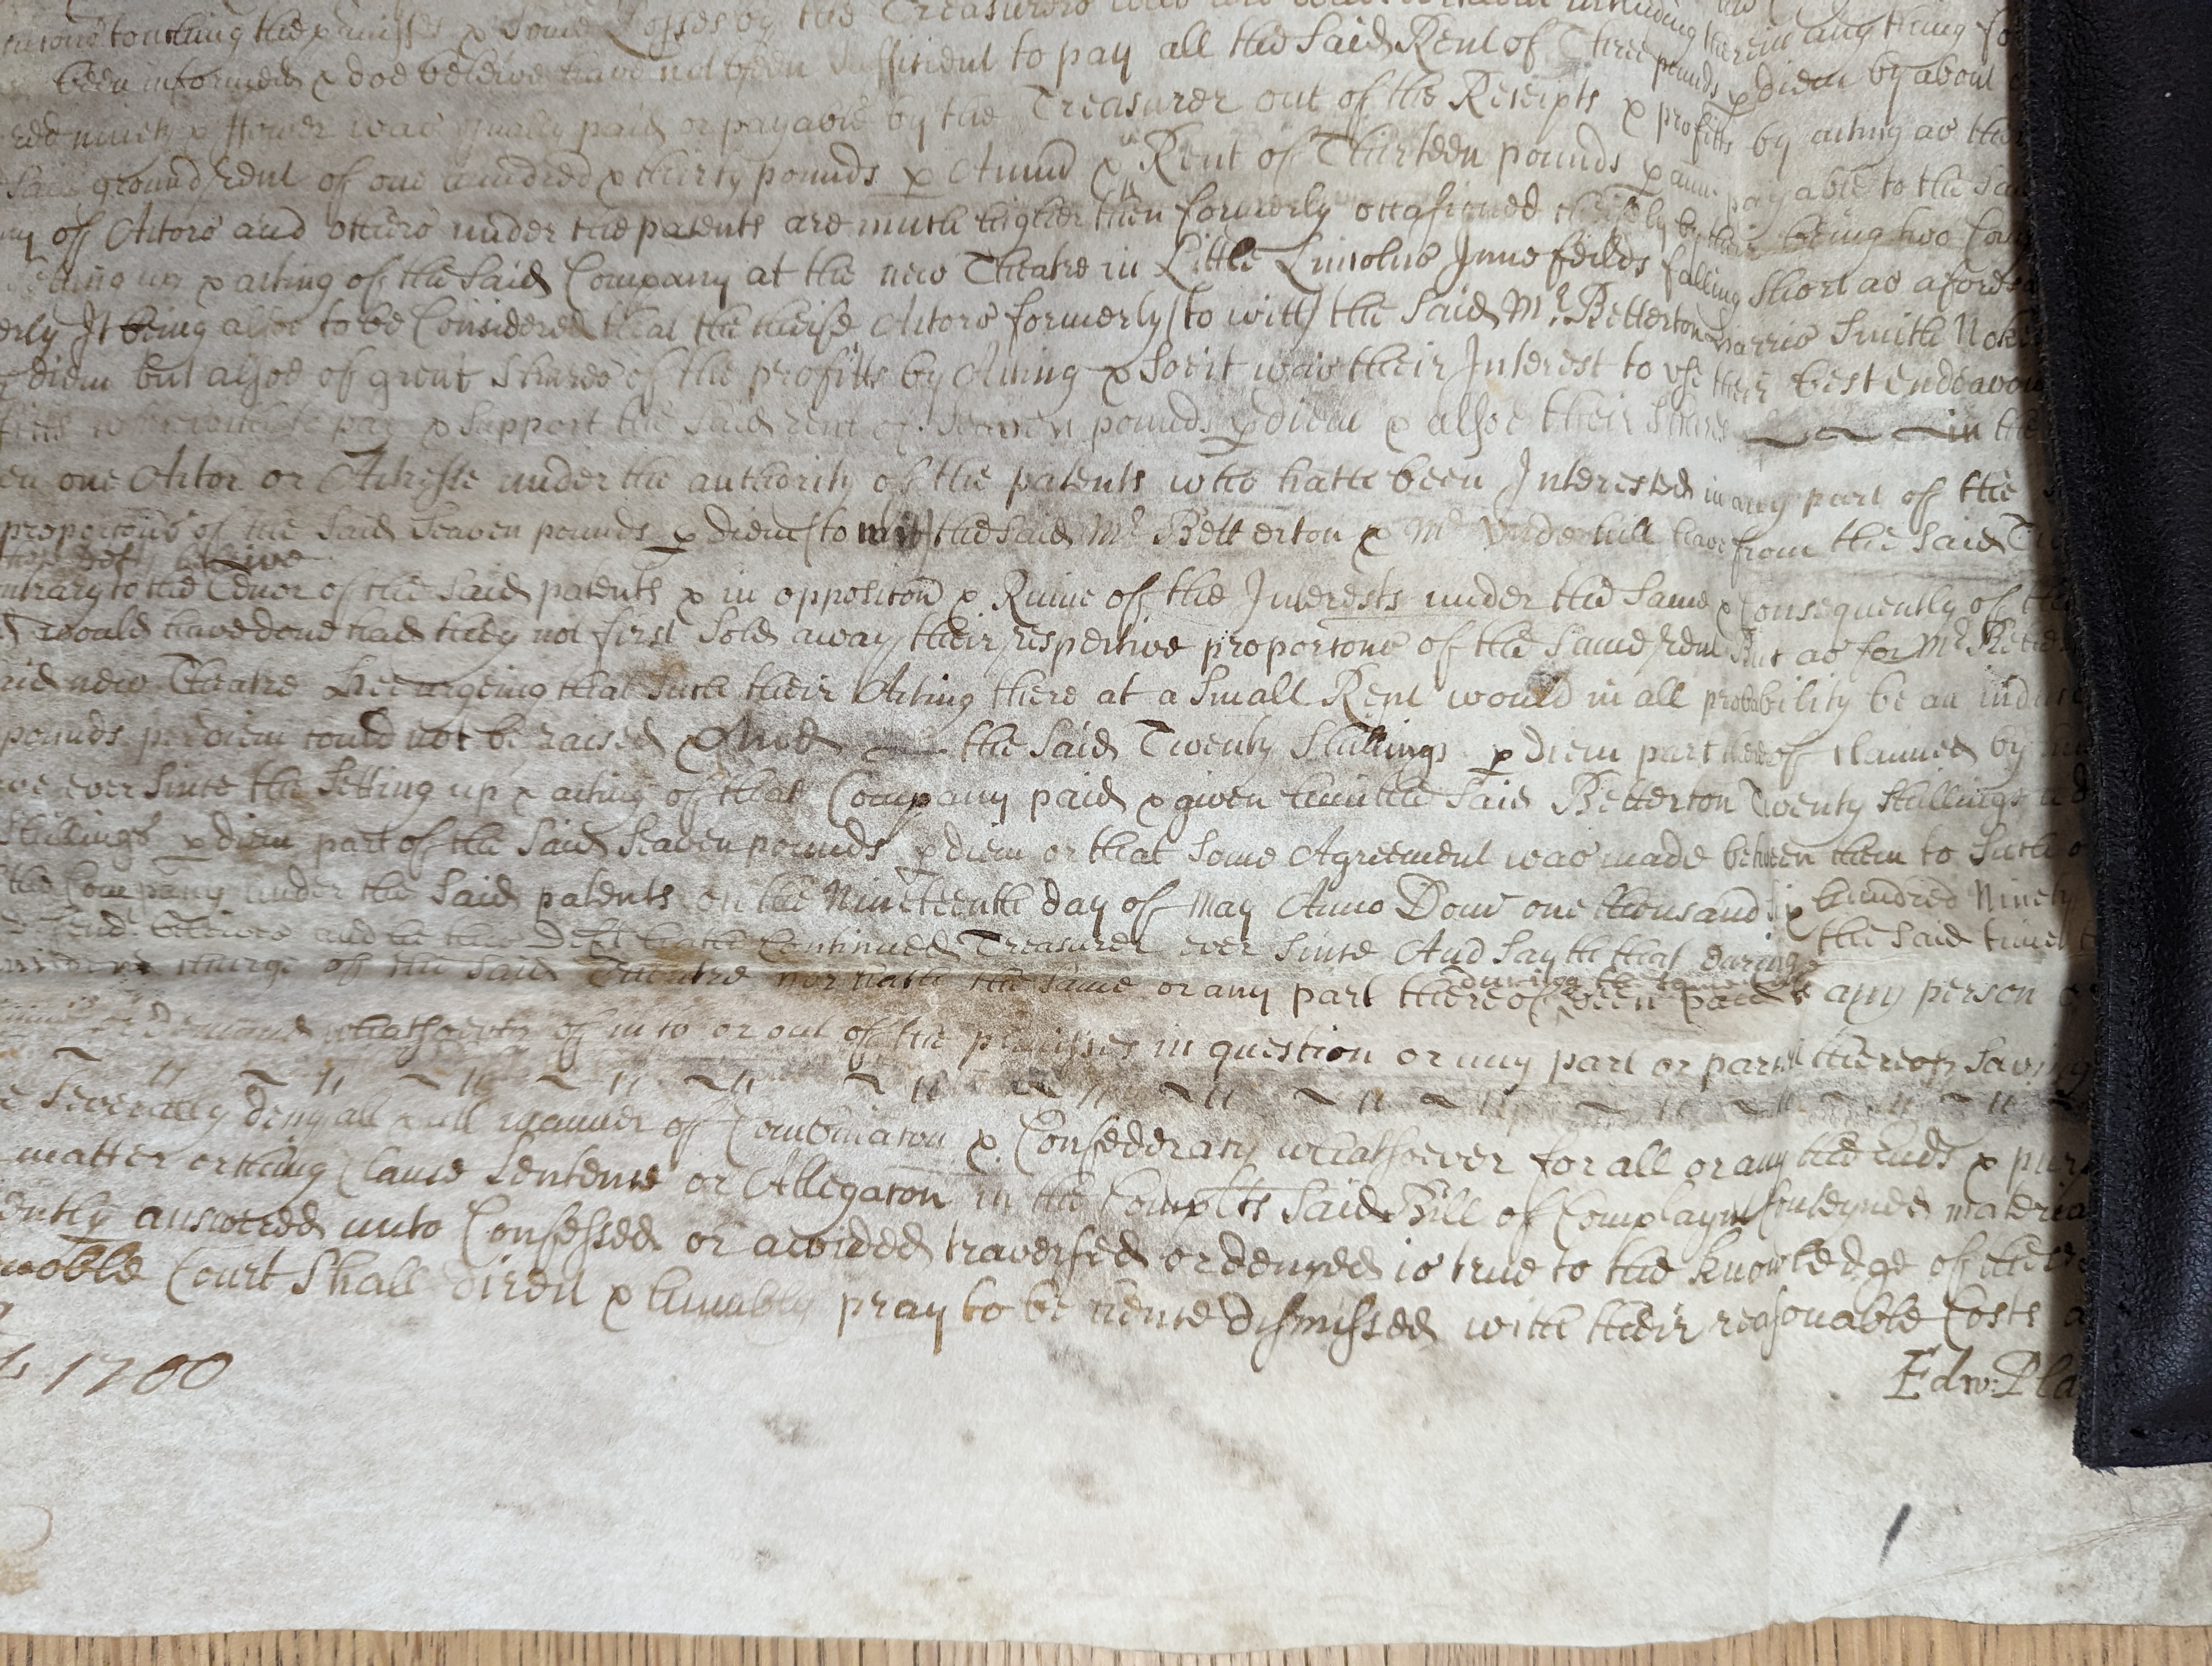 touching the p'misses & some Losses by the Treasurers
been informed & doe beleive have not been sufficient to pay all the said Rent of Three pounds p diem by about
red ninety & flower was usually paid or payable by the Treasurer out of the Receipts & profitts by acting as the
said ground rent of one hundred & thirty pounds p Annu & Rent of Thirteen pounds p ann. payable to the sa
ny of Actors and others under the patents are much higher then formerly occasioned cheifely by their being two Com
setting up & acting of the said Company at the new Theatre in Little Lincolns Inne feilds falling short as aforesa
erly It being alsoe to be Considered that the cheife Actors formerly (to witt) the said Mr. Betterton Harris Smith Noke
p diem but alsoe of great shares of the profitts by Acting & soe it was their Interest to use their best endeavou
fitts to pay & support the said rent of seaven pounds p diem & alsoe their shares in the
en one Actor or Actresse under the authority of the patents who hath been Interested in any part of the
proporcons of the said seaven pounds p diem (to witt) the said Mr Betterton & Mr Underhill have from the said T
this Deft beleive
ntrary to the Tenor of the said patents & in opposicon & Ruine of the Interests under the same & Consequently of the
would have done had they not first sold away their respective proporcons of the same rent But as for Mr Bette
aid new Theatre Hee urgeing that such their Acting there at a small Rent would in all probability be an induc
pounds per diem could not be raised And the said Twenty shillings p diem part thereof claimed by
ve ever since the setting up & acting of that Company paid & given him the said Betterton Twenty shillings
shillings p diem part of the said seaven pounds p diem or that some Agreement was made between them to such
the Company under the said patents on the Nineteenth day of May Anno Dom one thousand six hundred Ninety
beleives and this Deft hath Continued Treasurer ever since And saythe that during the said time
charge of the said Theatre nor hath the same or any part thereof been paid to any person
during the same
demand whatsoever of in to or out of the premisses in question or any part or parcell thereof saving
severally deny all & all manner of Combinacon & Confederacy whatsoever for all or any the ends & pur
matter or thing Clause sentence or Allegacon in the Complts said Bill of Complaynt Conteyned materia
ently answered unto Confessed or avoided traversed or denyed is true to the knowledge of these
noble Court shall direct & humbly pray to be hence dismissed with their reasonable Costs
1700
Edw: Pla